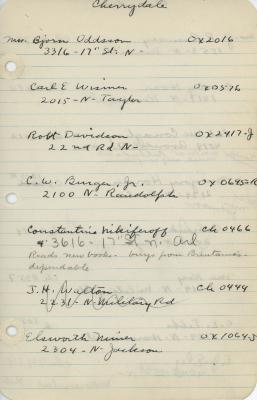 Cherrydale
Mrs. Bjorn Oddsson Ox 2016
3316 - 17" St. N -
Carl E Wismer Ox 0576
2015 - N - Taylor
Robt Davidson Ox 2417-J
22nd Rd N -
C. W. Burger, Jr. Ox 0645-R
2100 N. Randolph
Constantine Nikiferoff Ch 0466
3616 - 17" St. n. Arl
Reads new books - buys from Brentano's -
dependable
J. H. Walton Ch 0444
2431 - N - Military Rd
Elsworth Ox 1064-J
2304 - N - Jackson